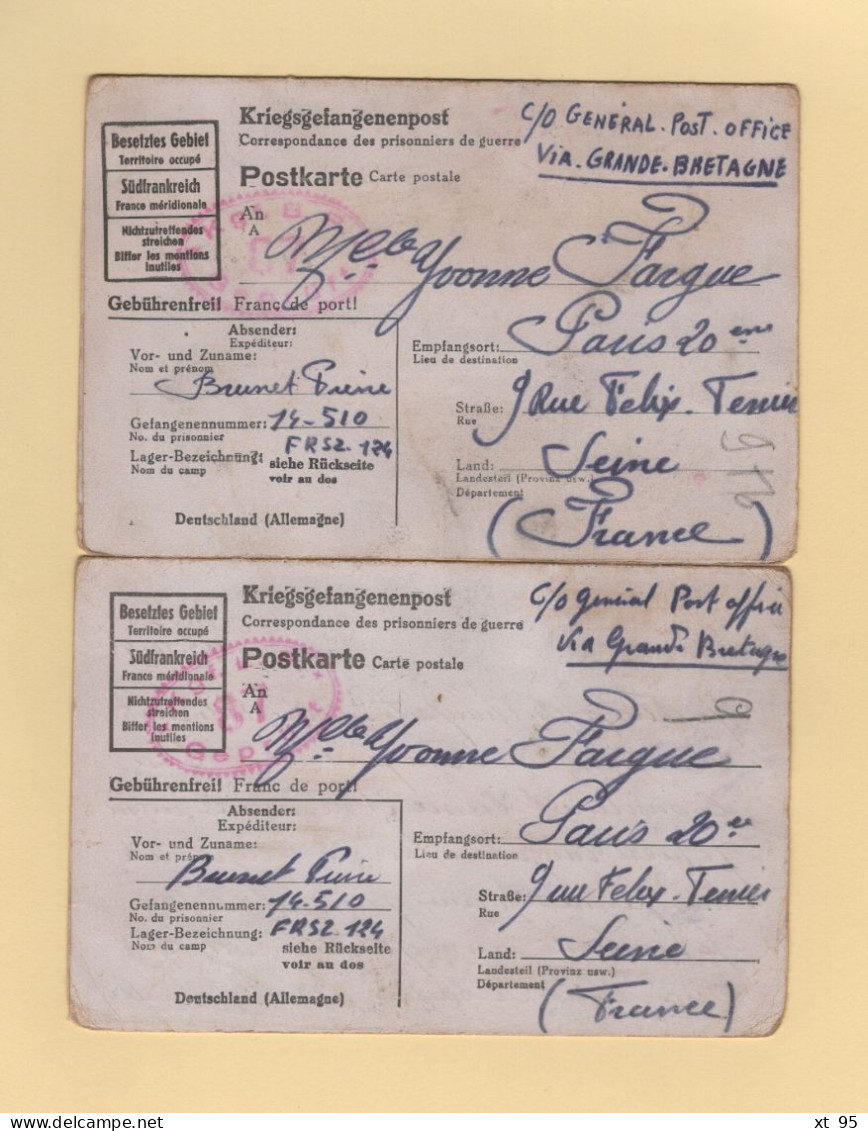 Besetztes Gebiet
Territoire occupé
Südfrankreich
France méridionale
Nichtzutreffendes
streichen
Biffer les mentions
inutiles
Kriegsgefangenenpost
Correspondance des prisonniers de guerre
Postkarte Carte postale
C/O GENÉRAL. POST. OFFICE
VIA. GRANDE. BRETAGNE
An
A
Melle Yvonne Fargue
Gebührenfrei! Franc de port!
Absender:
Expéditeur:
Vor- und Zuname:
Nom et prénom
Brunet Pierre
Gefangenennummer: 14-510
No. du prisonnier
FRSZ. 124
Lager-Bezeichnung: siehe Rückseite
Nom du camp voir au dos
Deutschland (Allemagne)
Empfangsort: Paris 20 eme
Lieu de destination
Straße: 9 Rue Felix. Terrier
Rue
Land: Seine
Landesteil (Provinz usw.)
Département
(France)
Besetztes Gebiet
Territoire occupé
Südfrankreich
France méridionale
Nichtzutreffendes
streichen
Biffer les mentions
inutiles
Kriegsgefangenenpost
Correspondance des prisonniers de guerre
Postkarte Carte postale
C/O général Post office
Via Grande Bretagne
9
An
A
87
Geprüft
Melle Yvonne Fargue
Gebührenfrei! Franc de port!
Absender:
Expéditeur:
Vor- und Zuname:
Nom et prénom
Brunet Pierre
Gefangenennummer: 14-510
No. du prisonnier
Lager-Bezeichnung: FRSZ. 124
Nom du camp siehe Rückseite
voir au dos
Deutschland (Allemagne)
Empfangsort: Paris 20 eme
Lieu de destination
Straße: 9 rue Felix. Terrier
Rue
Land: Seine
Landesteil (Provinz usw.)
Département
(France)
xt 95